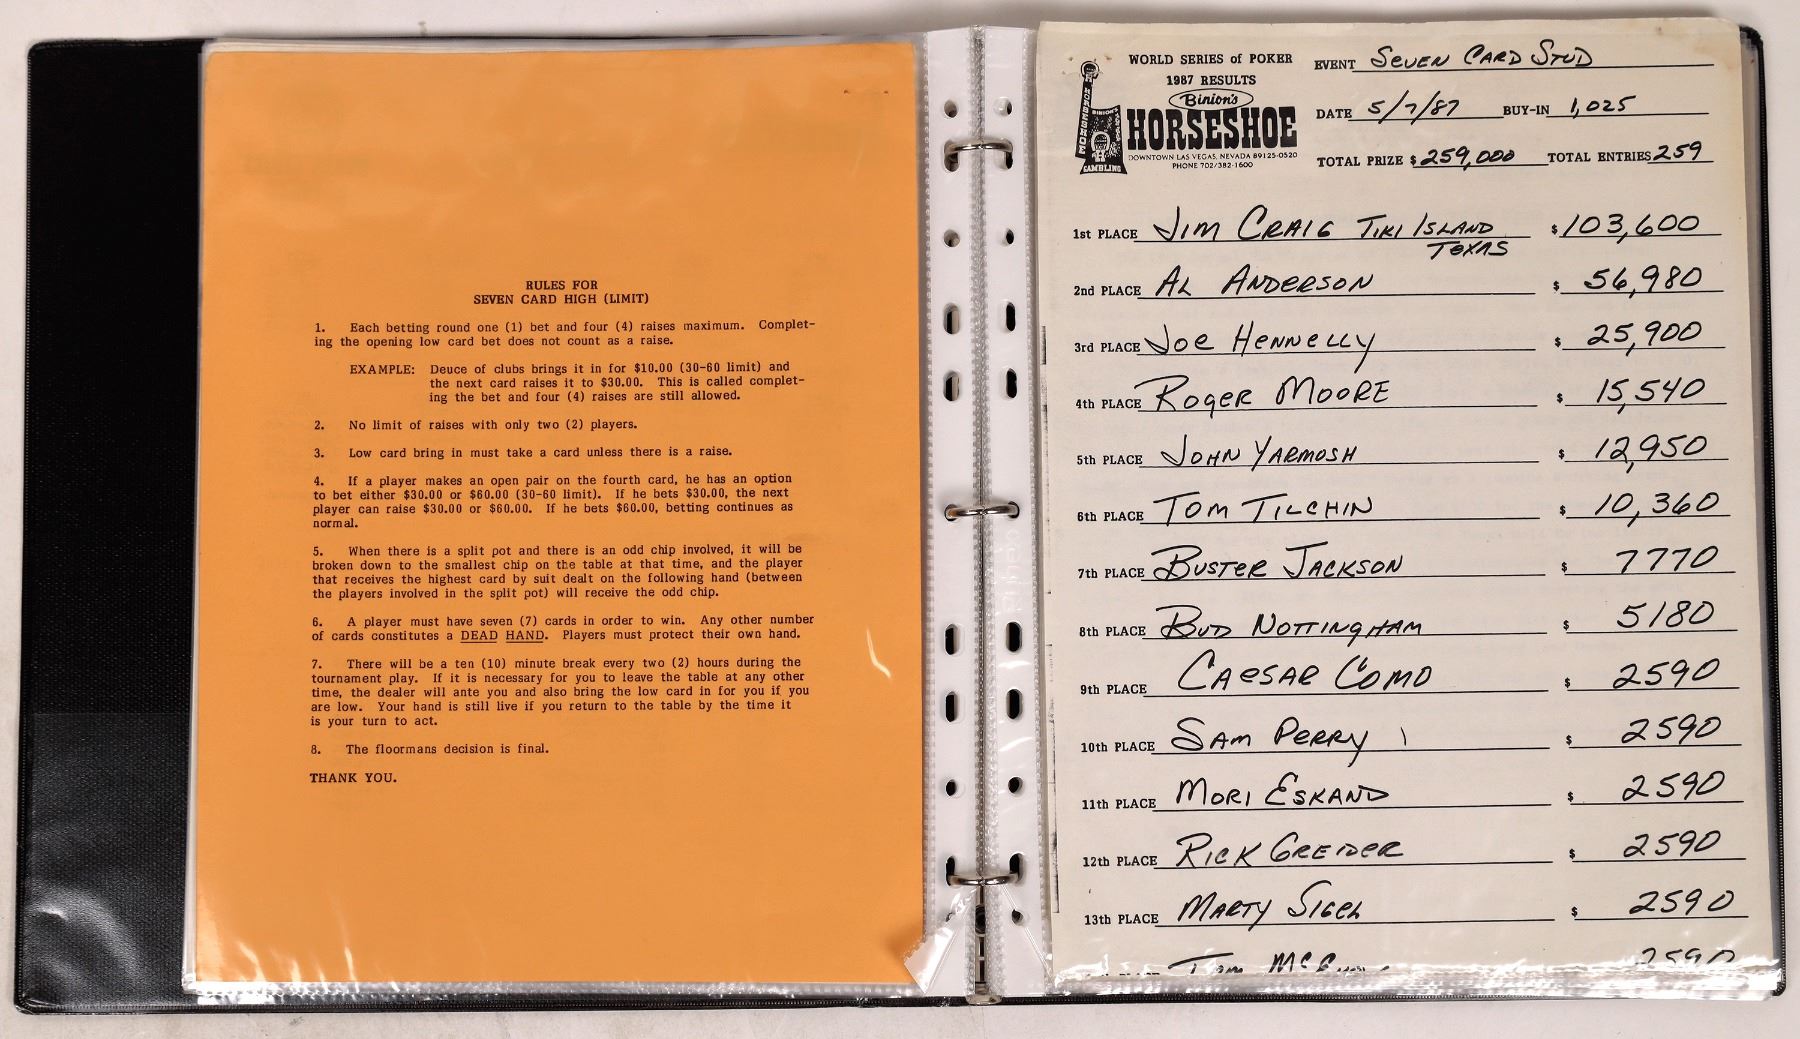 RULES FOR
SEVEN CARD HIGH (LIMIT)
1. Each betting round one (1) bet and four (4) raises maximum. Complet-
ing the opening low card bet does not count as a raise.
EXAMPLE: Deuce of clubs brings it in for $10.00 (30-60 limit) and
the next card raises it to $30.00. This is called complet-
ing the bet and four (4) raises are still allowed.
2. No limit of raises with only two (2) players.
3. Low card bring in must take a card unless there is a raise.
4. If a player makes an open pair on the fourth card, he has an option
to bet either $30.00 or $60.00 (30-60 limit). If he bets $30.00, the next
player can raise $30.00 or $60.00. If he bets $60.00, betting continues as
normal.
5. When there is a split pot and there is an odd chip involved, it will be
broken down to the smallest chip on the table at that time, and the player
that receives the highest card by suit dealt on the following hand (between
the players involved in the split pot) will receive the odd chip.
6. A player must have seven (7) cards in order to win. Any other number
of cards constitutes a DEAD HAND. Players must protect their own hand.
7. There will be a ten (10) minute break every two (2) hours during the
tournament play. If it is necessary for you to leave the table at any other
time, the dealer will ante you and also bring the low card in for you if you
are low. Your hand is still live if you return to the table by the time it
is your turn to act.
8. The floormans decision is final.
THANK YOU.
WORLD SERIES of POKER
1987 RESULTS
Binion's
HORSESHOE
DOWNTOWN LAS VEGAS, NEVADA 89125-0520
PHONE 702/382-1600
HORSESHOE
GAMBLING
EVENT SEVEN CARD STUD
DATE 5/7/87 BUY-IN 1,025
TOTAL PRIZE $ 259,000 TOTAL ENTRIES 259
1st PLACE JIM CRAIG TIKI ISLAND $ 103,600
TEXAS
2nd PLACE AL ANDERSON $ 56,980
3rd PLACE JOE HENNELLY $ 25,900
4th PLACE ROGER MOORE $ 15,540
5th PLACE JOHN YARMOSH $ 12,950
6th PLACE TOM TILCHIN $ 10,360
7th PLACE BUSTER JACKSON $ 7770
8th PLACE BUD NOTTINGHAM $ 5180
9th PLACE CAESAR COMO $ 2590
10th PLACE SAM PERRY $ 2590
11th PLACE MORI ESKAND $ 2590
12th PLACE RICK GREIDER $ 2590
13th PLACE MARTY SIGEL $ 2590
2590